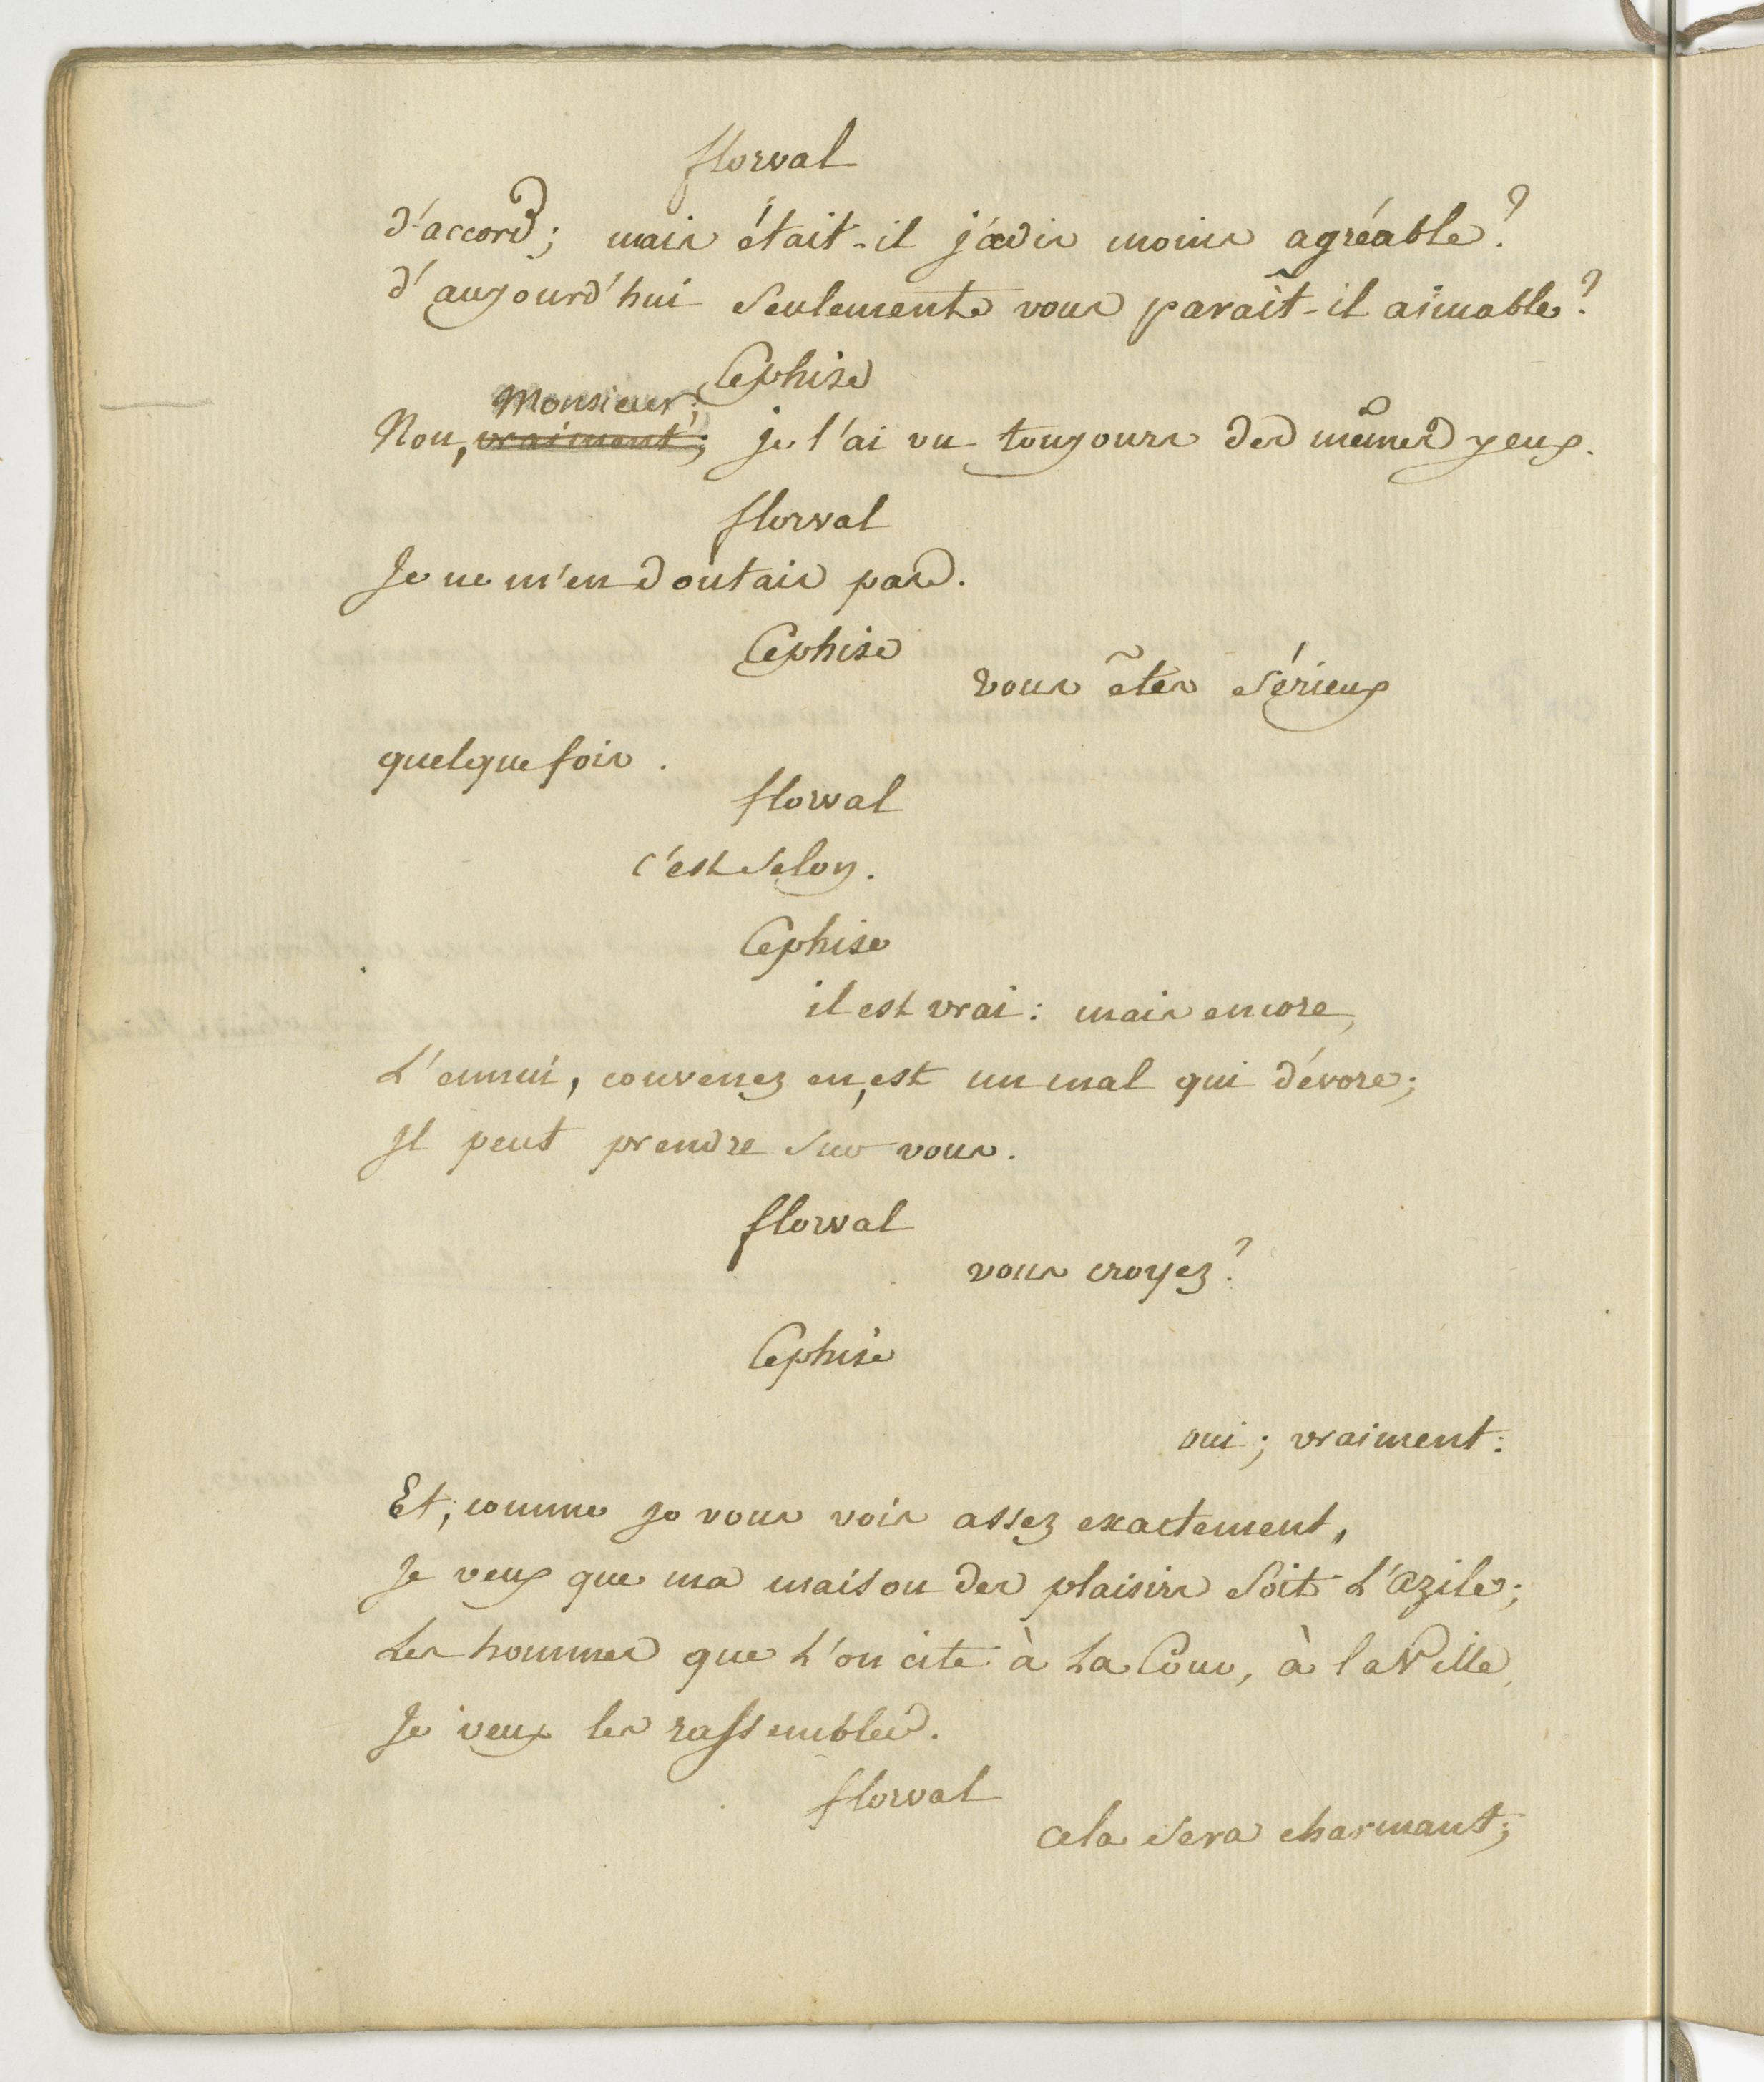 florval
d'accord; mais était-il jadis moins agréable?
d'aujourd'hui seulement vous paraît-il aimable?
Cephise
Monsieur;
Non, vraiment; je l'ai vu toujours des mêmes yeux.
florval
Je ne m'en doutais pas.
Cephise
vous êtes sérieux
quelque fois.
florval
c'est selon.
Cephise
il est vrai: mais encore,
L'ennui, convenez en, est un mal qui dévore;
Il peut prendre sur vous.
florval
vous croyez?
Cephise
oui; vraiment:
Et, comme je vous vois assez exactement,
Je veux que ma maison des plaisirs soit L'azile;
Les hommes que L'on cite à La Cour, à la Ville,
Je veux les rassembler.
florval
cela sera charmant;